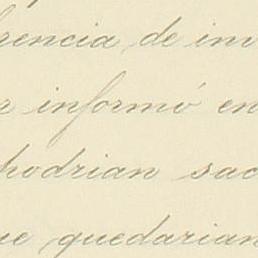 rencia, de in
informó en
podrian sac
ue quedarian